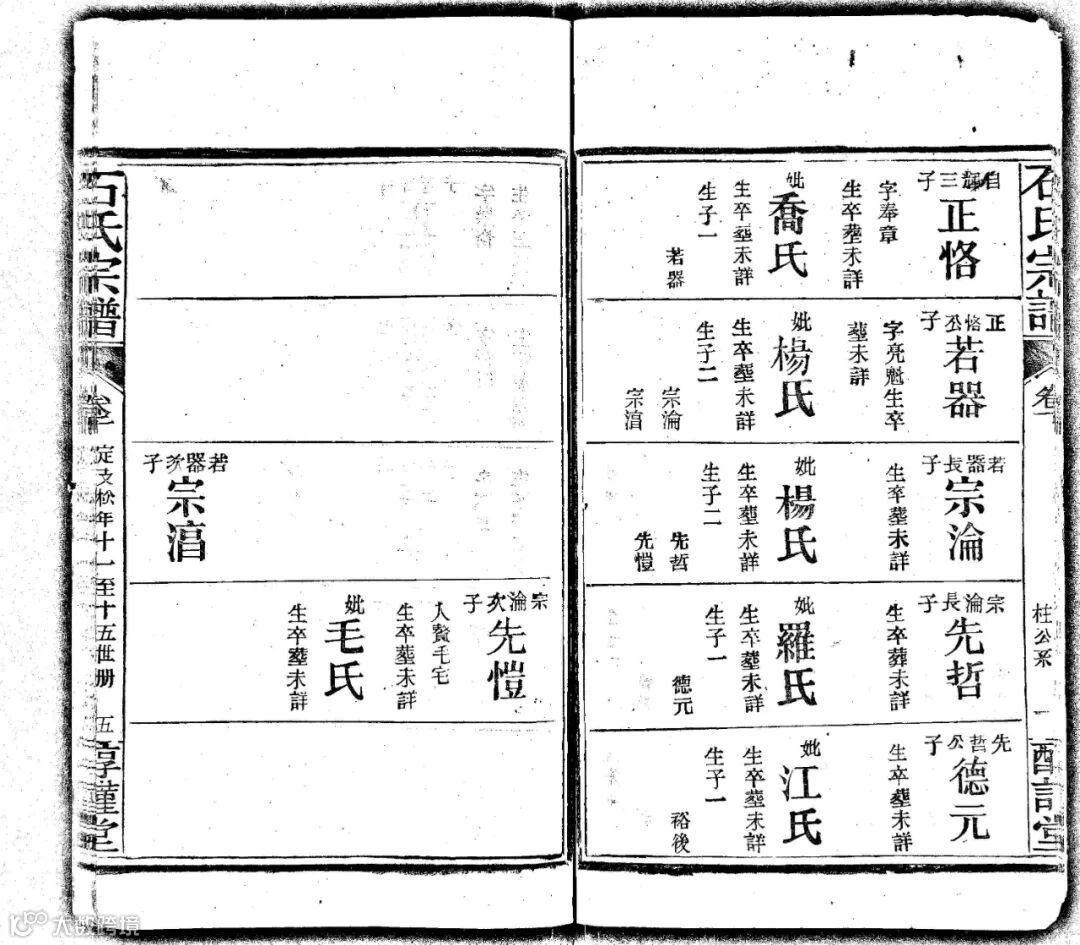 石氏宗譜
卷
柱公系
一
自輝三子
正恪
字奉章
生卒塟未詳
妣
喬氏
生卒塟未詳
生子一
若器
正恪公子
若器
字亮魁生卒
塟未詳
妣
楊氏
生卒塟未詳
生子二
宗淪
宗湻
若器長子
宗淪
生卒塟未詳
妣
楊氏
生卒塟未詳
生子二
先哲
先愷
宗淪長子
先哲
生卒葬未詳
妣
羅氏
生卒塟未詳
生子一
德元
先哲公子
德元
生卒塟未詳
妣
江氏
生卒塟未詳
生子一
裕後
若器次子
宗湻
宗淪次子
先愷
入贅毛宅
生卒塟未詳
妣
毛氏
生卒塟未詳
石氏宗譜
定支松年十一至十五世册
五
大数跨境